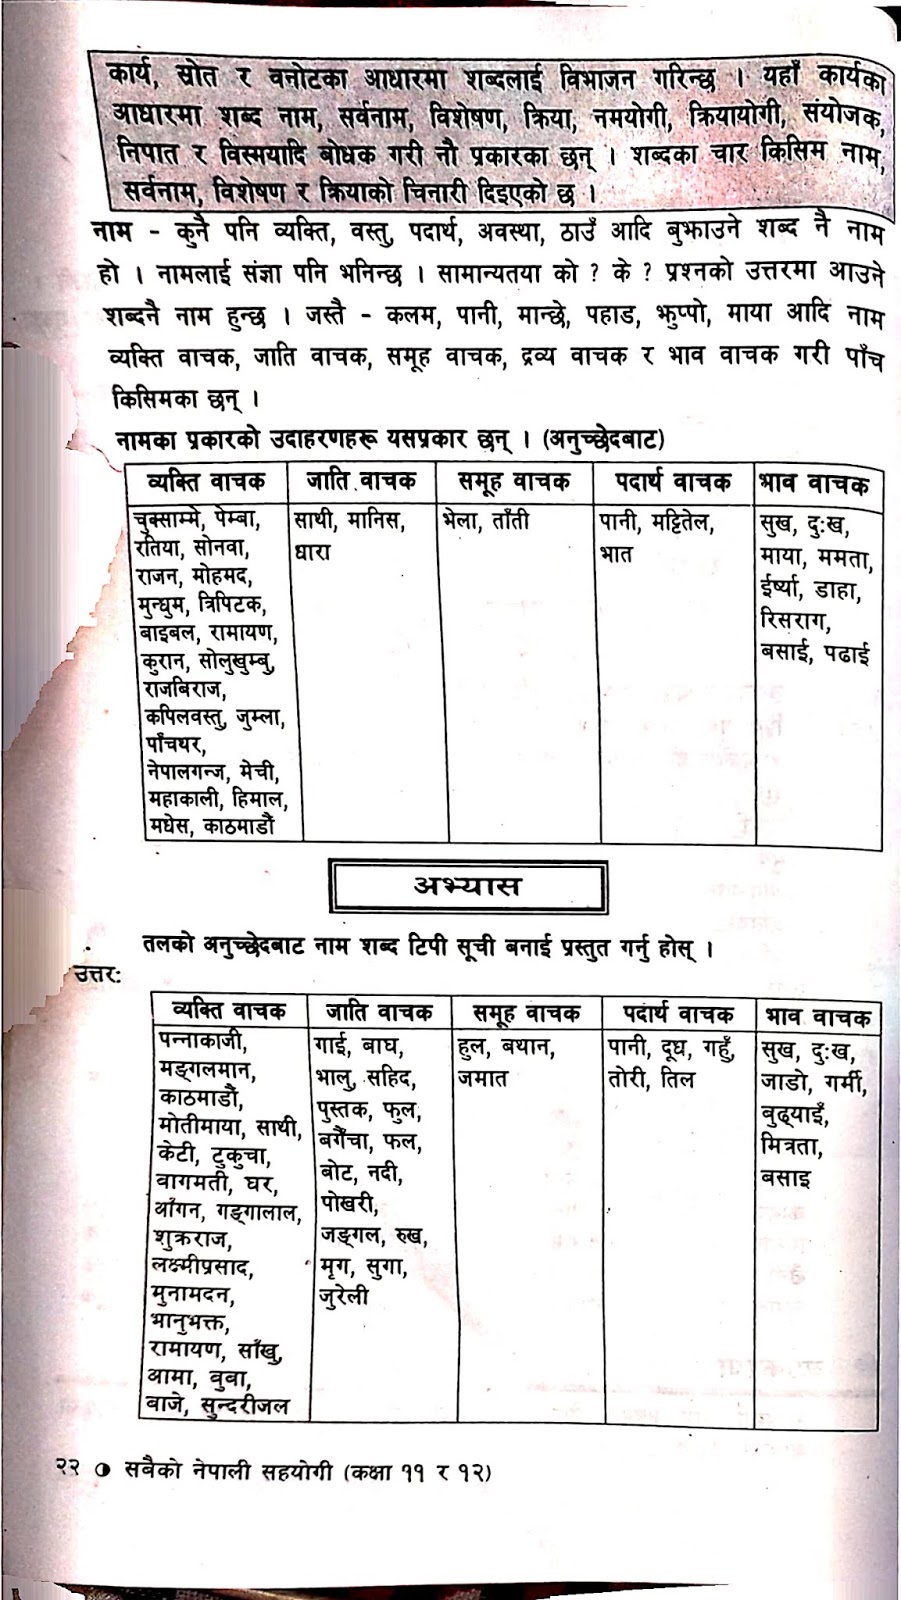 कार्य, स्रोत र वनोटका आधारमा शब्दलाई विभाजन गरिन्छ । यहाँ कार्यका
आधारमा शब्द नाम, सर्वनाम, विशेषण, क्रिया, नमयोगी, क्रियायोगी, संयोजक,
निपात र विस्मयादि बोधक गरी नौ प्रकारका छन् । शब्दका चार किसिम नाम,
सर्वनाम, विशेषण र क्रियाको चिनारी दिइएको छ ।
नाम - कुनै पनि व्यक्ति, वस्तु, पदार्थ, अवस्था, ठाउँ आदि बुझाउने शब्द नै नाम
हो । नामलाई संज्ञा पनि भनिन्छ । सामान्यतया को ? के ? प्रश्नको उत्तरमा आउने
शब्दनै नाम हुन्छ । जस्तै - कलम, पानी, मान्छे, पहाड, झुप्पो, माया आदि नाम
व्यक्ति वाचक, जाति वाचक, समूह वाचक, द्रव्य वाचक र भाव वाचक गरी पाँच
किसिमका छन् ।
नामका प्रकारको उदाहरणहरू यसप्रकार छन् । (अनुच्छेदबाट)
व्यक्ति वाचक
चुक्साम्मे, पेम्बा,
रतिया, सोनवा,
राजन, मोहमद,
मुन्धुम, त्रिपिटक,
बाइबल, रामायण,
कुरान, सोलुखुम्बु,
राजबिराज,
कपिलवस्तु, जुम्ला,
पाँचथर,
नेपालगन्ज, मेची,
महाकाली, हिमाल,
मधेस, काठमाडौं
जाति वाचक
साथी, मानिस,
धारा
समूह वाचक
भेला, ताँती
पदार्थ वाचक
पानी, मट्टितेल,
भात
भाव वाचक
सुख, दुःख,
माया, ममता,
ईर्ष्या, डाहा,
रिसराग,
बसाई, पढाई
अभ्यास
तलको अनुच्छेदबाट नाम शब्द टिपी सूची बनाई प्रस्तुत गर्नु होस् ।
उत्तरः
व्यक्ति वाचक
पन्नाकाजी,
मङ्गलमान,
काठमाडौं,
मोतीमाया, साथी,
केटी, टुकुचा,
वागमती, घर,
आँगन, गङ्गालाल,
शुक्रराज,
लक्ष्मीप्रसाद,
मुनामदन,
भानुभक्त,
रामायण, साँखु,
आमा, बुवा,
बाजे, सुन्दरीजल
जाति वाचक
गाई, बाघ,
भालु, सहिद,
पुस्तक, फुल,
बगैँचा, फल,
बोट, नदी,
पोखरी,
जङ्गल, रुख,
मृग, सुगा,
जुरेली
समूह वाचक
हुल, बथान,
जमात
पदार्थ वाचक
पानी, दूध, गहुँ,
तोरी, तिल
भाव वाचक
सुख, दुःख,
जाडो, गर्मी,
बुढ्याइँ,
मित्रता,
बसाइ
२२ सबैको नेपाली सहयोगी (कक्षा ११ र १२)